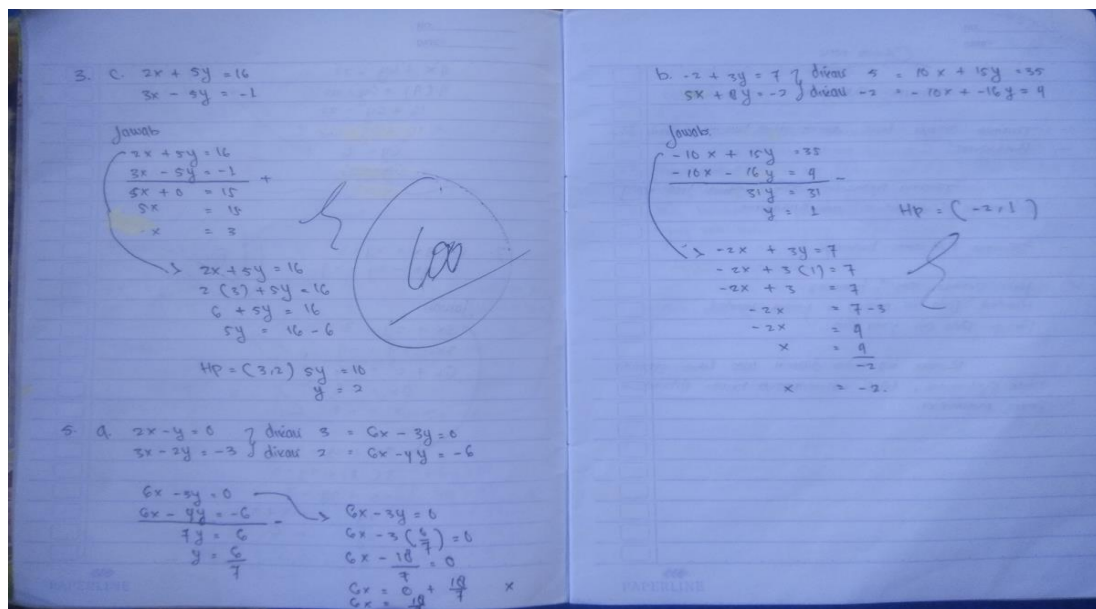 3. c. 2x + 5y = 16
3x - 5y = -1
Jawab
2x + 5y = 16
3x - 5y = -1 +
5x + 0 = 15
5x = 15
x = 3
2x + 5y = 16
2 (3) + 5y = 16
6 + 5y = 16
5y = 16 - 6
Hp = (3,2) 5y = 10
y = 2
100
5. a. 2x - y = 0 } dikali 3 = 6x - 3y = 0
3x - 2y = -3 } dikali 2 = 6x - 4y = -6
6x - 3y = 0
6x - 4y = -6 -
7y = 6
y = 6/7
6x - 3y = 0
6x - 3 (6/7) = 0
6x - 18/7 = 0
6x = 0 + 18/7 x
6x = 18
PAPERLINE
b. -2 + 3y = 7 } dikali 5 = 10x + 15y = 35
5x + 8y = -2 } dikali -2 = -10x + -16y = 4
Jawab.
-10x + 15y = 35
-10x - 16y = 4 -
31y = 31
y = 1
Hp = (-2,1)
-2x + 3y = 7
-2x + 3 (1) = 7
-2x + 3 = 7
-2x = 7 - 3
-2x = 4
x = 4/-2
x = -2.
PAPERLINE